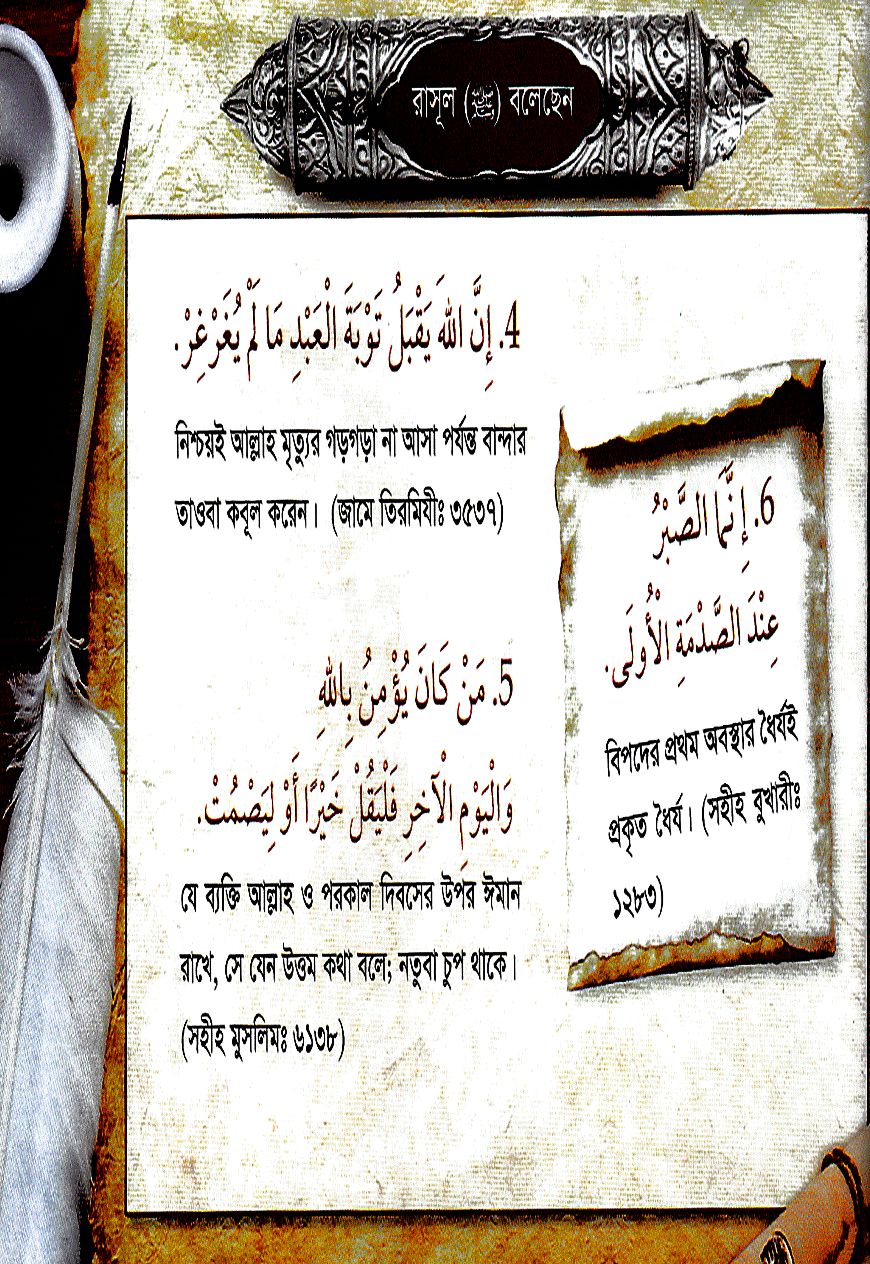 রাসূল (ﷺ) বলেছেন
4. إِنَّ اللهَ يَقْبَلُ تَوْبَةَ الْعَبْدِ مَا لَمْ يُغَرْغِرْ.
নিশ্চয়ই আল্লাহ মৃত্যুর গড়গড়া না আসা পর্যন্ত বান্দার
তাওবা কবূল করেন। (জামে তিরমিযীঃ ৩৫৩৭)
5. مَنْ كَانَ يُؤْمِنُ بِاللهِ
وَالْيَوْمِ الْآخِرِ فَلْيَقُلْ خَيْرًا أَوْ لِيَصْمُتْ.
যে ব্যক্তি আল্লাহ ও পরকাল দিবসের উপর ঈমান
রাখে, সে যেন উত্তম কথা বলে; নতুবা চুপ থাকে।
(সহীহ মুসলিমঃ ৬১৩৮)
6. إِنَّمَا الصَّبْرُ
عِنْدَ الصَّدْمَةِ الْأُولَى.
বিপদের প্রথম অবস্থার ধৈর্যই
প্রকৃত ধৈর্য। (সহীহ বুখারীঃ
১২৮৩)